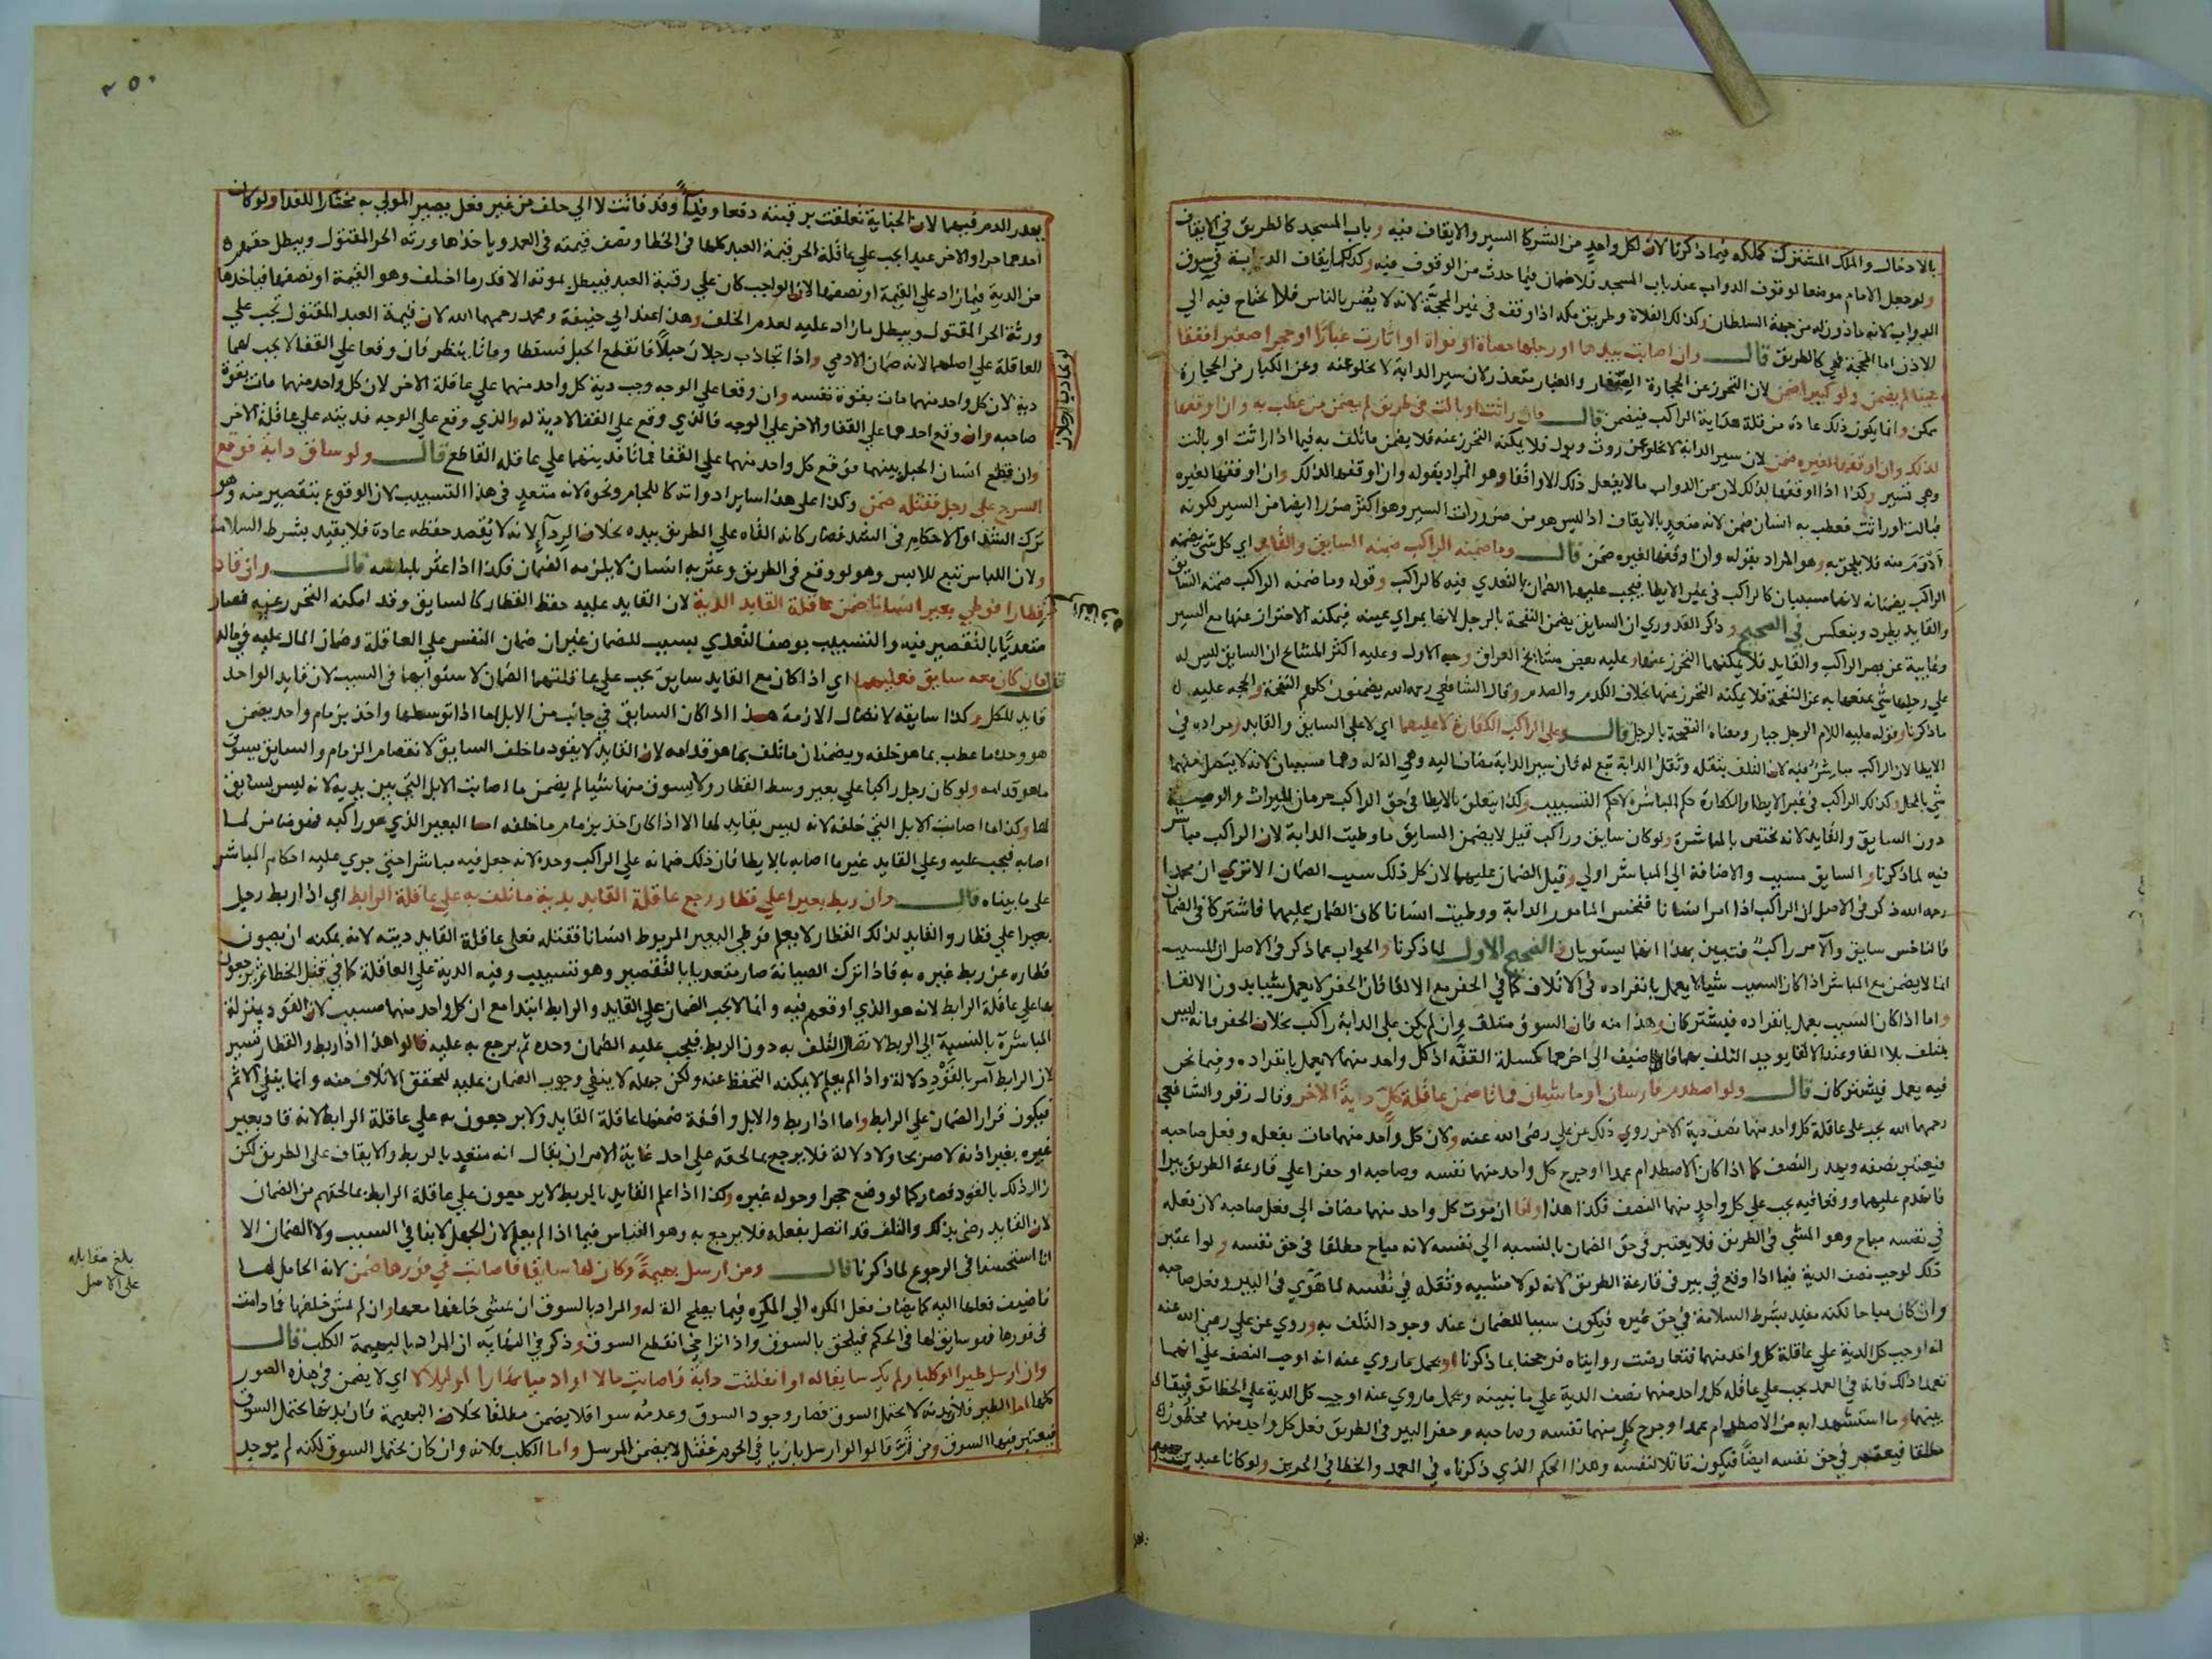 بالادخال والملك المشترك كملكه فيما ذكرنا لان لكل واحد من الشركا السير والايقاف فيه وباب المسجد كالطريق في الايقاف
ولو جعل الامام موضعا لوقوف الدواب عند باب المسجد فلا ضمان فيما حدث من الوقوف فيه وكذلك ايقاف الدابة في سوق
الدواب لانه ماذون له من جهة السلطان وكذلك الفلاة وطريق مكة اذا وقف في غير المحجة لانه لا يضر بالناس فلا يحتاج فيه الي
الاذن اما المحجة فهي كالطريق قال وان اصابت بيدها او رجلها حصاة او نواة او اثارت غبارا او حجرا صغيرا ففقا
عينا لم يضمن ولو كبيرا ضمن لان التحرز عن الحجارة الصغار والغبار متعذر لان سير الدابة لا يخلو عنه وعن الكبار من الحجارة
ممكن وانما يكون ذلك عادة من قلة هداية الراكب فيضمن قال فان راثت او بالت في طريق لم يضمن من عطب به وان اوقفها
لذلك وان اوقفها لغيره ضمن لان سير الدابة لا يخلو عن روث وبول فلا يمكنه التحرز عنه فلا يضمن ما تلف به فيما اذا راثت او بالت
وهي تسير وكذا اذا اوقفها لذلك لان من الدواب ما لا يفعل ذلك الا واقفا وهو المراد بقوله وان اوقفها لذلك وان اوقفها لغيره
فبالت او راثت فعطب به انسان ضمن لانه متعد بالايقاف اذ ليس هو من ضرورات السير وهو اكثر ضررا ايضا من السير لكونه
ادوم منه فلا يلحق به وهو المراد بقوله وان اوقفها لغيره ضمن قال وما ضمنه الراكب ضمنه السايق والقايد اي كل شي يضمنه
الراكب يضمنانه لانهما مسببان كالراكب في غير الايطا فيجب عليهما الضمان بالتعدي فيه كالراكب وقوله وما ضمنه الراكب ضمنه السايق
والقايد يطرد وينعكس في الصحيح وذكر القدوري ان السايق يضمن النفحة بالرجل لانها بمراي عينه فيمكنه الاحتراز عنها مع السير
وغايبة عن بصر الراكب والقايد فلا يمكنهما التحرز عنها وعليه بعض مشايخ العراق وجه الاول وعليه اكثر المشايخ ان السايق ليس له
علي رجلها شي يمنعها به عن النفحة فلا يمكنه التحرز عنها بخلاف الكدم والصدم وقال الشافعي رحمه الله يضمنون كلهم النفحة والحجة عليه
ما ذكرنا وقوله عليه السلام الرجل جبار ومعناه النفحة بالرجل قال وعلي الراكب الكفارة لا عليهما اي لا علي السايق والقايد ومراده في
الايطا لان الراكب مباشر فيه لان التلف بثقله وثقل الدابة تبع له فان سير الدابة مضاف اليه وهي الة له وهما مسببان لانه لا يتصل منهما
شي بالمحل وكذلك الراكب في غير الايطا والكفارة حكم المباشرة لا حكم التسبيب وكذا يتعلق بالايطا في حق الراكب حرمان الميراث والوصية
دون السايق والقايد لانه يختص بالمباشرة ولو كان سايق وراكب قيل لا يضمن السايق ما وطيت الدابة لان الراكب مباشر
فيه لما ذكرنا والسايق مسبب والاضافة الي المباشر اولي وقيل الضمان عليهما لان كل ذلك سبب الضمان الا تري ان محمدا
رحمه الله ذكر في الاصل ان الراكب اذا امر انسانا فنخس المامور الدابة ووطيت انسانا كان الضمان عليهما فاشتركا في الضمان
فالناخس سايق والامر راكب فتبين بهذا انهما يستويان والصحيح الاول لما ذكرنا والجواب عما ذكر في الاصل ان المسبب
انما لا يضمن مع المباشر اذا كان السبب شيا لا يعمل بانفراده في الاتلاف كما في الحفر مع الالقا فان الحفر لا يعمل شيا بدون الالقا
واما اذا كان السبب يعمل بانفراده فيشتركان وهذا منه فان السوق متلف وان لم يكن علي الدابة راكب بخلاف الحفر فانه ليس
بمتلف بلا القا وعند الالقا يوجد التلف بهما فاضيف الي اخرهما كمسلة القفة اذ كل واحد منهما لا يعمل بانفراده وفيما نحن
فيه يعمل فيشتركان قال ولو اصطدم فارسان او ماشيان فماتا ضمن عاقلة كل دية الاخر وقال زفر والشافعي
رحمهما الله يجب علي عاقلة كل واحد منهما نصف دية الاخر روي ذلك عن علي رضي الله عنه ولان كل واحد منهما مات بفعله وفعل صاحبه
فيعتبر نصفه ويهدر النصف كما اذا كان الاصطدام عمدا او جرح كل واحد منهما نفسه وصاحبه او حفرا علي قارعة الطريق بيرا
فانهدم عليهما ووقعا فيه يجب علي كل واحد منهما النصف فكذا هذا ولنا ان موت كل واحد منهما مضاف الي فعل صاحبه لان فعله
في نفسه مباح وهو المشي في الطريق فلا يعتبر في حق الضمان بالنسبة الي نفسه لانه مباح مطلقا في حق نفسه ولو اعتبر
ذلك لوجب نصف الدية فيما اذا وقع في بير في قارعة الطريق لانه لولا مشيه وثقله في نفسه لما هوي في البير وفعل صاحبه
وان كان مباحا لكنه مقيد بشرط السلامة في حق غيره فيكون سببا للضمان عند وجود التلف به وروي عن علي رضي الله عنه
انه اوجب كل الدية علي عاقلة كل واحد منهما فتعارضت روايتاه فرجحنا بما ذكرنا او يحمل ما روي عنه انه اوجب النصف علي انهما
تعمدا ذلك فانه في العمد يجب علي عاقلة كل واحد منهما نصف الدية علي ما نبينه ويحمل ما روي عنه اوجب كل الدية علي الخطا توفيقا
بينهما وما استشهدا به من الاصطدام عمدا وجرح كل منهما نفسه وصاحبه وحفر البير في الطريق فعل كل واحد منهما محظور
مطلقا فيعتبر في حق نفسه ايضا فيكون قاتلا لنفسه وهذا الحكم الذي ذكرناه في العمد والخطا في الحرين ولو كانا عبدين
٢٥٠
يهدر الدم فيهما لان الجناية تعلقت برقبته دفعا وفداء وقد فاتت لا الي خلف من غير فعل يصير المولي به مختارا للفدا ولو كان
احدهما حرا والاخر عبدا يجب علي عاقلة الحر قيمة العبد كلها في الخطا ونصف قيمته في العمد وياخذها ورثة الحر المقتول ويبطل حقهم
من الدية فيما زاد علي القيمة او نصفها لان الواجب كان علي رقبة العبد فيبطل بموته الا قدر ما اخلف وهو القيمة او نصفها فياخذها
ورثة الحر المقتول ويبطل ما زاد عليه لعدم الخلف وهذا عند ابي حنيفة ومحمد رحمهما الله لان قيمة العبد المقتول تجب علي
العاقلة علي اصلهما لانه ضمان الادمي واذا تجاذب رجلان حبلا فانقطع الحبل فسقطا وماتا ينظر فان وقعا علي القفا لا يجب لهما
دية لان كل واحد منهما مات بقوة نفسه وان وقعا علي الوجه وجب دية كل واحد منهما علي عاقلة الاخر لان كل واحد منهما مات بقوة
صاحبه وان وقع احدهما علي القفا والاخر علي الوجه فالذي وقع علي القفا لا دية له والذي وقع علي الوجه فديته علي عاقلة الاخر
وان قطع انسان الحبل بينهما فوقع كل واحد منهما علي القفا فماتا فديتهما علي عاقلة القاطع قال ولو ساق دابة فوقع
السرج علي رجل فقتله ضمن وكذا علي هذا ساير ادواته كاللجام ونحوه لانه متعد في هذا التسبيب لان الوقوع بتقصير منه وهو
ترك الشد او الاحكام في الشد فصار كانه القاه علي الطريق بيده بخلاف الردآء لانه لا يقصد حفظه عادة فلا يقيد بشرط السلامة
ولان اللباس تبع للابس وهو لو وقع في الطريق وعثر به انسان لا يلزمه الضمان فكذا اذا عثر بلباسه قال وان قاد
قطارا فوطي بعير انسانا ضمن عاقلة القايد الدية لان القايد عليه حفظ القطار كالسايق وقد امكنه التحرز عنه فصار
متعديا بالتقصير فيه والتسبيب بوصف التعدي بسبب للضمان غير ان ضمان النفس علي العاقلة وضمان المال عليه في ماله
قال فان كان معه سايق فعليهما اي اذا كان مع القايد سايق تجب علي عاقلتهما الضمان لاستوايهما في السبب لان قايد الواحد
قايد للكل وكذا سايقه لاتصال الازمة هذا اذا كان السايق في جانب من الابل اما اذا توسطها واخذ بزمام واحد يضمن
هو وحده ما عطب بما هو خلفه ويضمنان ما تلف بما هو قدامه لان القايد لا يقود ما خلف السايق لانفصام الزمام والسايق يسوق
ما هو قدامه ولو كان رجل راكبا علي بعير وسط القطار ولا يسوق منها شيا لم يضمن ما اصابت الابل التي بين يديه لانه ليس بسايق
لها وكذا ما اصابت الابل التي خلفه لانه ليس بقايد لها الا اذا كان اخذ بزمام ما خلفه اما البعير الذي هو راكبه فهو ضامن لما
اصابه فيجب عليه وعلي القايد غير ما اصابه بالايطا فان ذلك ضمانه علي الراكب وحده لانه جعل فيه مباشرا حتي جري عليه احكام المباشر
علي ما بيناه قال وان ربط بعيرا علي قطار رجع عاقلة القايد بدية ما تلف به علي عاقلة الرابط اي اذا ربط رجل
بعيرا علي قطار والقايد لذلك القطار لا يعلم فوطي البعير المربوط انسانا فقتله فعلي عاقلة القايد ديته لانه يمكنه ان يصون
قطاره عن ربط غيره به فاذا ترك الصيانة صار متعديا بالتقصير وهو تسبيب وفيه الدية علي العاقلة كما في قتل الخطا ثم يرجعون
بها علي عاقلة الرابط لانه هو الذي اوقعهم فيه وانما لا يجب الضمان علي القايد والرابط ابتدا مع ان كل واحد منهما مسبب لان القود بمنزلة
المباشرة بالنسبة الي الربط لاتصال التلف به دون الربط فيجب عليه الضمان وحده ثم يرجع به عليه قالوا هذا اذا ربط والقطار تسير
لان الرابط آمر بالقود دلالة واذا لم يعلم لا يمكنه التحفظ عنه ولكن جهله لا ينفي وجوب الضمان عليه لتحقق الاتلاف منه وانما ينفي الاثم
فيكون قرار الضمان علي الرابط واما اذا ربط والابل واقفة ضمنها عاقلة القايد ولا يرجعون به علي عاقلة الرابط لانه قاد بعير
غيره بغير اذنه لا صريحا ولا دلالة فلا يرجع بما لحقه علي احد غاية الامر ان يقال انه متعد بالربط والايقاف علي الطريق لكن
زال ذلك بالقود فصار كما لو وضع حجرا وحوله غيره وكذا اذا علم القايد بالربط لا يرجعون علي عاقلة الرابط بما لحقهم من الضمان
لان القايد رضي بذلك والتلف قد اتصل بفعله فلا يرجع به وهو القياس فيما اذا لم يعلم لان الجهل لا ينافي السبب ولا الضمان الا
انا استحسنا في الرجوع لما ذكرنا قال ومن ارسل بهيمة وكان لها سايقا فاصابت في فورها ضمن لانه الحامل لها
فاضيف فعلها اليه كما يضاف فعل المكره الي المكره فيما يصلح الة له والمراد بالسوق ان يمشي خلفها معها وان لم يمش خلفها فما دامت
في فورها فهو سايق لها في الحكم فيلحق بالسوق واذا تراخي انقطع السوق وذكر في النهاية ان المراد بالبهيمة الكلب قال
وان ارسل طيرا او كلبا ولم يكن سايقا له او انفلتت دابة فاصابت مالا او ادميا نهارا او ليلا لا اي لا يضمن في هذه الصور
كلها اما الطير فلان بدنه لا يحتمل السوق فصار وجود السوق وعدمه سوا فلا يضمن مطلقا بخلاف البهيمة فان بدنها يحتمل السوق
فيعتبر فيها السوق ومن ثم قالوا لو ارسل بازيا في الحرم فقتل لا يضمن المرسل واما الكلب فلانه وان كان يحتمل السوق لكنه لم يوجد
لو تجاذب رجلان
بلغ مقابله
علي الاصل